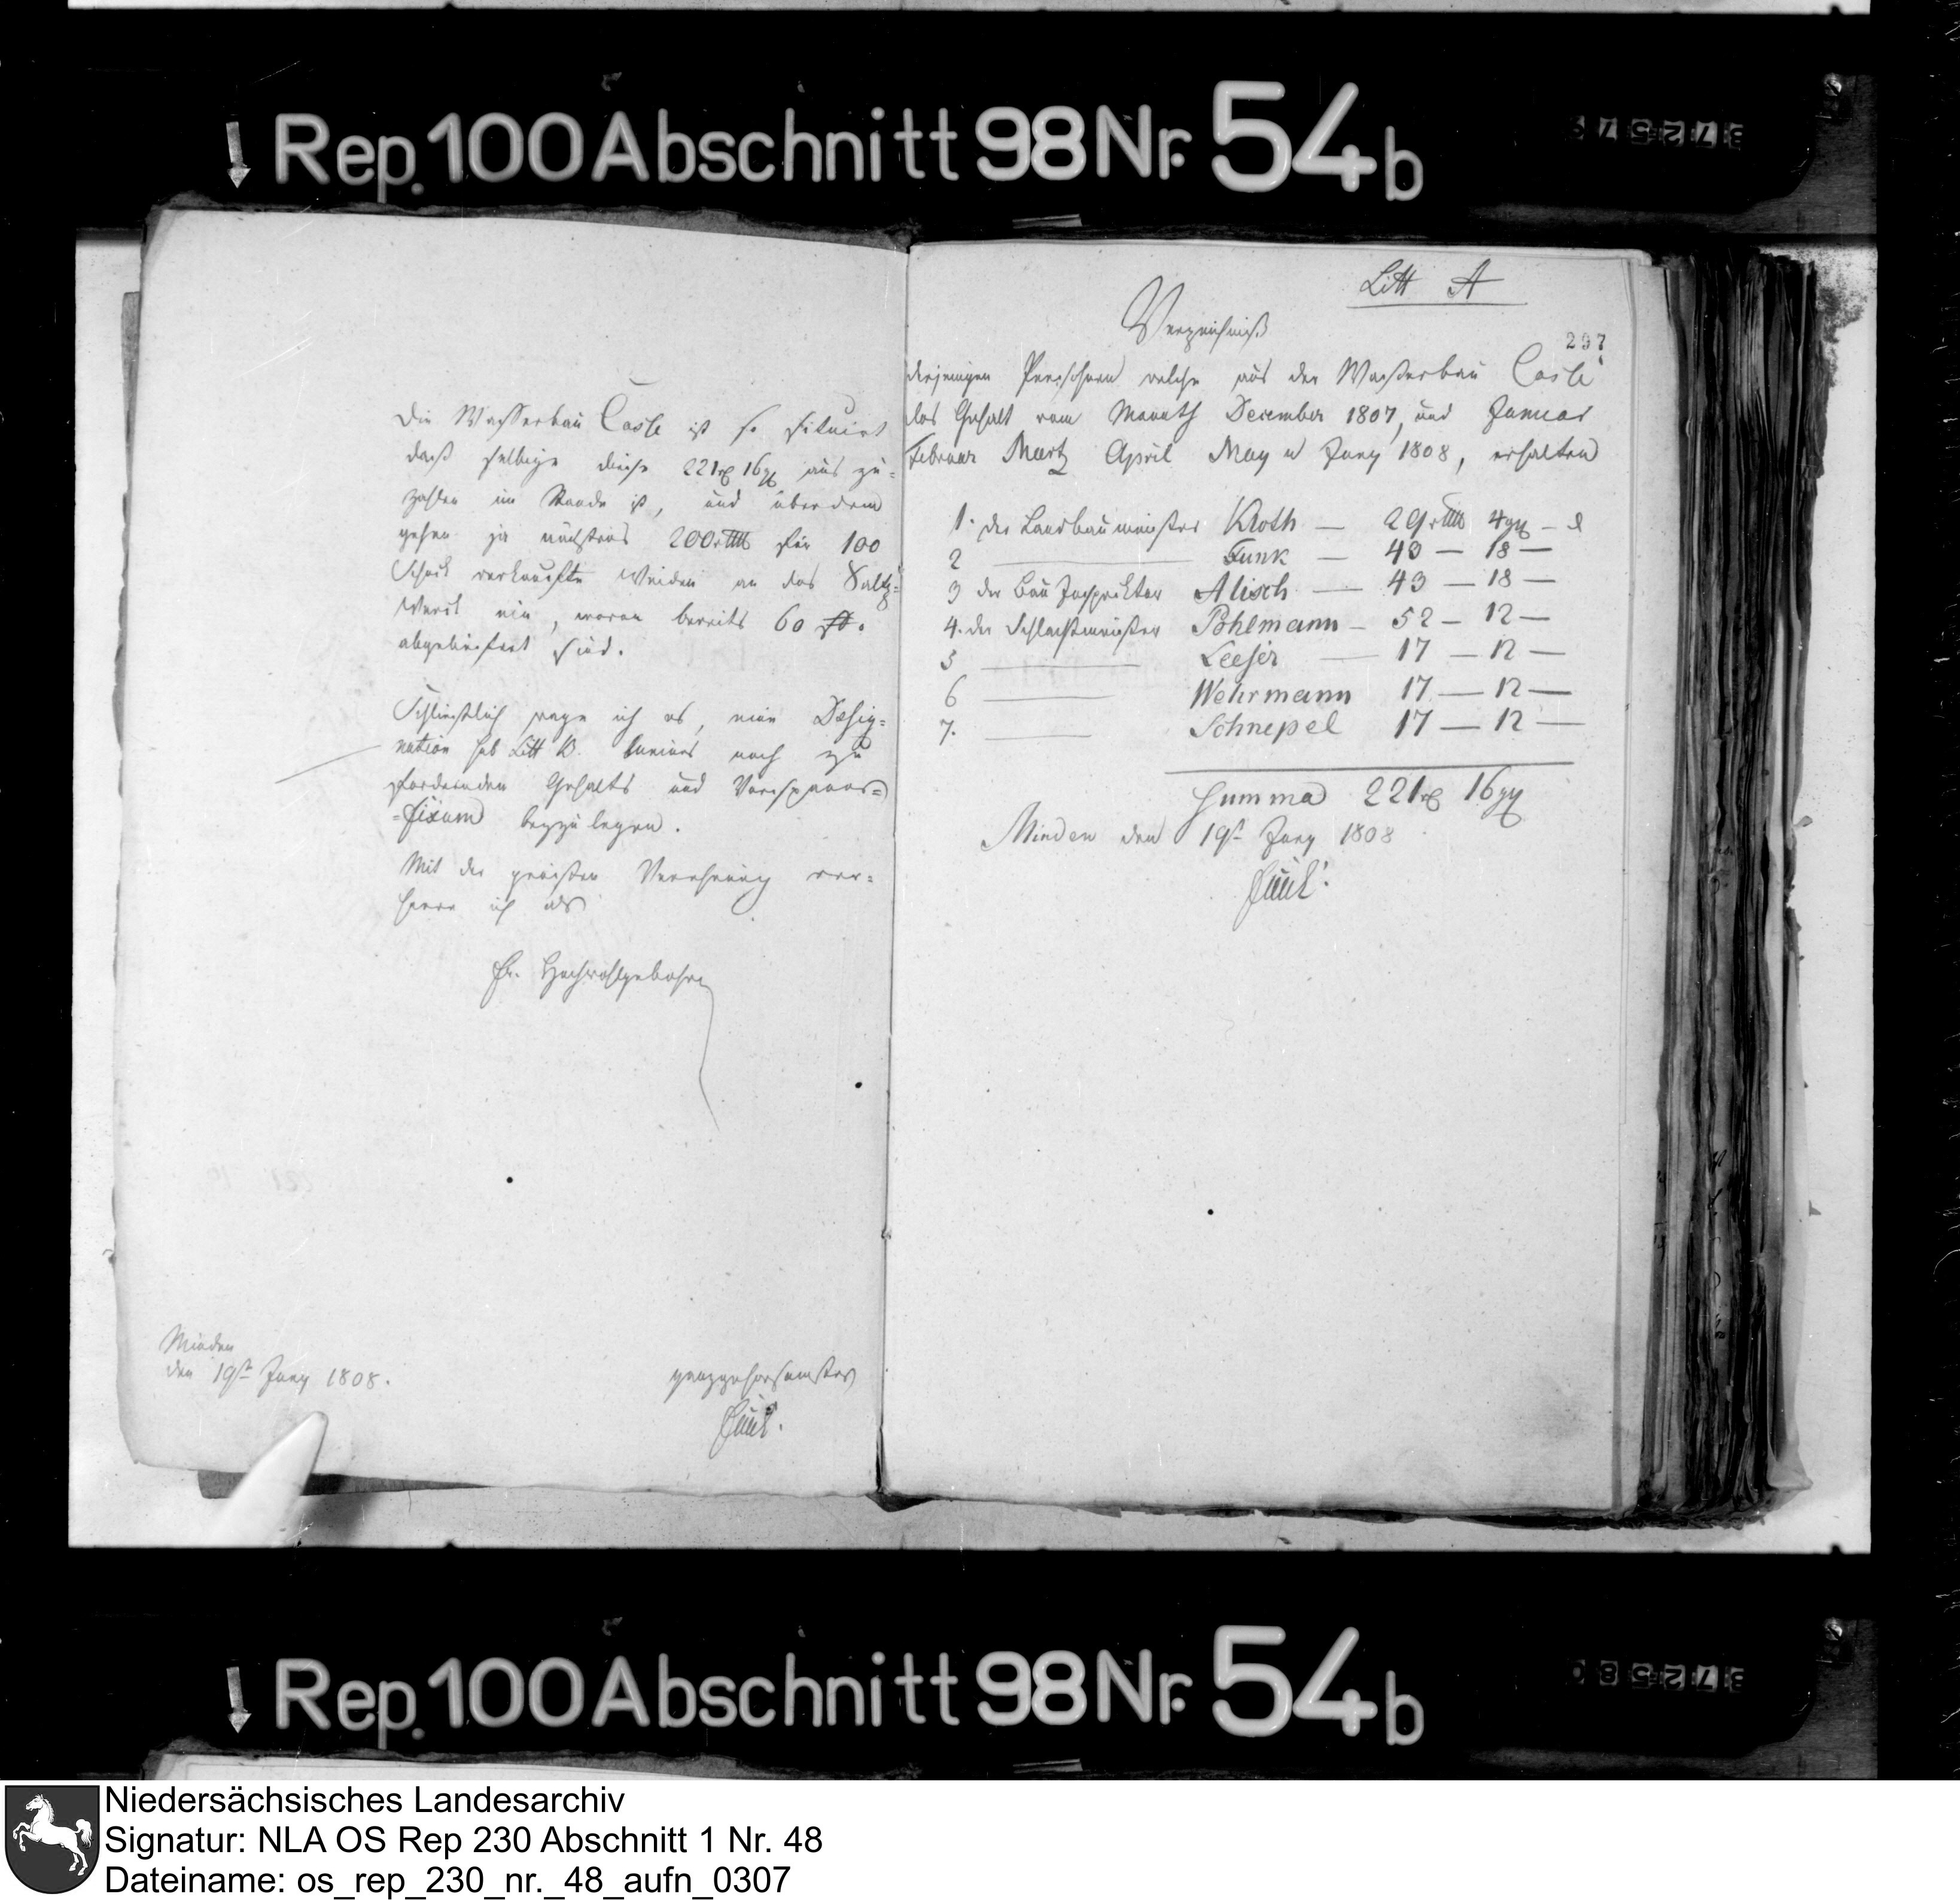 Rep. 100 Abschnitt 98 Nr. 54b
Die Wasserbau Casse ist so situirt
daß selbige diese 221 rt 16 gg aus zu-
zahlen im Stande ist, und überdem
gehen ja nächstens 200 rthlr für 100
Schock verkaufte Weiden an das Saltz-
Werck ein, wovon bereits 60
abgeliefert sind.
Schließlich wage ich es, eine Desig-
nation sub Litt B. meines noch zu
fordernden Gehalts und Vorspann-
-fixum beyzulegen.
Mit der größten Verehrung ver-
harre ich als
Ew. Hochwohlgebohrn
Minden
den 19ten Juny 1808.
ganzgehorsamster
Funk.
Litt A
297
Verzeichniß
derjenigen Persohnen welche aus der Wasserbau Casse
das Gehalt vom Monath December 1807, und Januar
Februar Martz April May u Juny 1808, erhalten
1. der Landbaumeister Kloth — 29 rthlr 4 gg — d
2 — Funk — 43 — 18 —
3 der Bau Inspektor Alisch — 43 — 18 —
4. der Schlachtmeister Pohlmann — 52 — 12 —
5 — Leeser — 17 — 12 —
6 — Wehrmann 17 — 12 —
7. — Schnepel 17 — 12 —
Summa 221 rt 16 gg
Minden den 19t Juny 1808
Funk.
Rep. 100 Abschnitt 98 Nr. 54b
Niedersächsisches Landesarchiv
Signatur: NLA OS Rep 230 Abschnitt 1 Nr. 48
Dateiname: os_rep_230_nr._48_aufn_0307